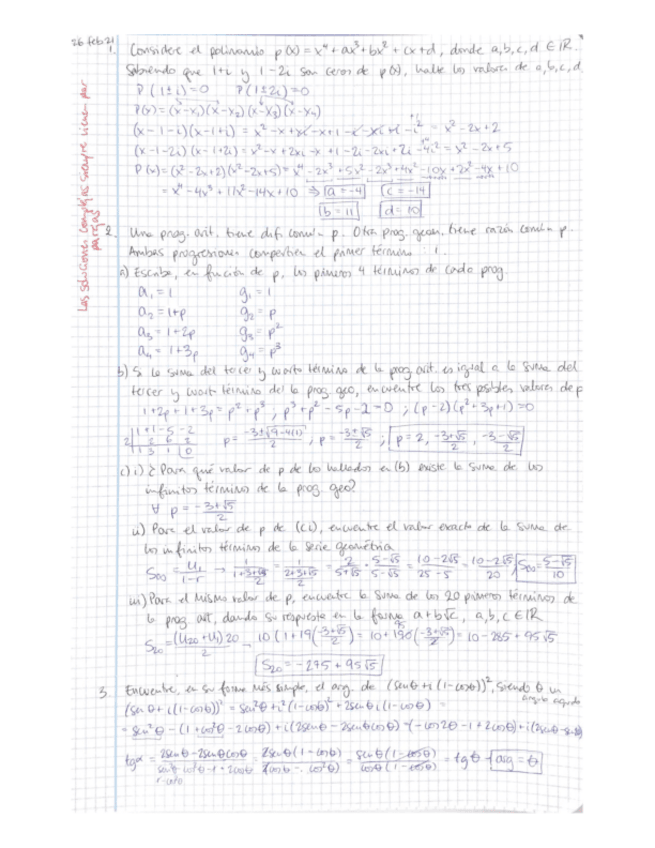 26 feb. 21
1. Considere el polinomio p(x) = x⁴ + ax³ + bx² + cx + d, donde a, b, c, d ∈ ℝ.
Sabiendo que 1+i y 1-2i son ceros de p(x), halle los valores de a, b, c, d
P(1±i)=0 P(1±2i)=0
P(x) = (x-x₁)(x-x₂)(x-x₃)(x-x₄)
(x-1-i)(x-1+i) = x² - x + xi - x + 1 - i - xi + i - i² = x² - 2x + 2
(x-1-2i)(x-1+2i) = x² - x + 2xi - x + 1 - 2i - 2xi + 2i - 4i² = x² - 2x + 5
P(x) = (x²-2x+2)(x²-2x+5) = x⁴ - 2x³ + 5x² - 2x³ + 4x² - 10x + 2x² - 4x + 10
= x⁴ - 4x³ + 11x² - 14x + 10 ⇒ a = -4 c = -14
b = 11 d = 10
Las soluciones complejas siempre vienen por parejas
2. Una prog. arit. tiene dif. común p. Otra prog. geom. tiene razón común p.
Ambas progresiones comparten el primer término: 1.
a) Escriba, en función de p, los primeros 4 términos de cada prog.
a₁ = 1 g₁ = 1
a₂ = 1+p g₂ = p
a₃ = 1+2p g₃ = p²
a₄ = 1+3p g₄ = p³
b) Si la suma del tercer y cuarto término de la prog. arit. es igual a la suma del
tercer y cuarto término de la prog. geo, encuentre los tres posibles valores de p
1+2p+1+3p = p²+p³ ; p³+p²-5p-2=0 ; (p-2)(p²+3p+1)=0
1 +1 -5 -2
2 2 6 2
1 3 1 0
p = -3±√(9-4(1))/2 , p = -3±√5/2 ; p = 2, -3+√5/2, -3-√5/2
c) i) ¿Para qué valor de p de los hallados en (b) existe la suma de los
infinitos término de la prog. geo?
∀ p = -3+√5/2
ii) Para el valor de p de (ci), encuentre el valor exacto de la suma de
los infinitos término de la serie geométrica
S∞ = u₁/1-r → 1/1+3+√5/2 = 1/2+3+√5/2 = 2/5+√5 · 5-√5/5-√5 = 10-2√5/25-5 = 10-2√5/20 , S∞ = 5-√5/10
iii) Para el mismo valor de p, encuentre la suma de los 20 primeros términos de
la prog. arit, dando su respuesta en la forma a+b√c, a, b, c ∈ ℝ
S₂₀ = (u₂₀+u₁)20/2 → 10(1+19(-3+√5/2)) = 10+190(-3+√5/2) = 10-285+95√5
S₂₀ = -275+95√5
3. Encuentre, en su forma más simple, el arg. de (senθ+i(1-cosθ))², siendo θ un
ángulo agudo
(senθ+i(1-cosθ))² = sen²θ+i²(1-cosθ)²+2senθi(1-cosθ) =
= sen²θ-(1+cos²θ-2cosθ)+i(2senθ-2senθcosθ) = (-cos2θ-1+2cosθ)+i(2senθ
tgα = 2senθ-2senθcosθ/ = 2senθ(1-cosθ)/ = senθ(1-cosθ)/cosθ(1-cosθ) = tgθ → arg = θ